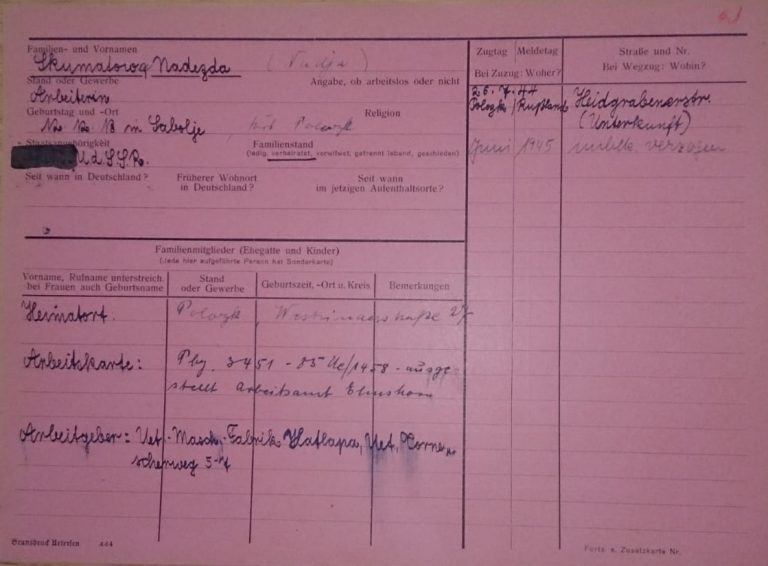 Familien- und Vornamen
Skumatoroq Nadezda (Nadja)
Stand oder Gewerbe
Angabe, ob arbeitslos oder nicht
Arbeiterin
Geburtstag und -Ort
Religion
12. 12. 18 in Sabolje, Polozk
Staatsangehörigkeit
Familienstand
(ledig, verheiratet, verwitwet, getrennt lebend, geschieden)
U.d.S.S.R.
Seit wann in Deutschland?
Früherer Wohnort in Deutschland?
Seit wann im jetzigen Aufenthaltsorte?
Zugtag
Meldetag
Bei Zuzug: Woher?
Straße und Nr.
Bei Wegzug: Wohin?
26. 7. 44
Polozk / Rußland
Heidgrabenerstr.
(Unterkunft)
Juni 1945 unbek. verzogen
Familienmitglieder (Ehegatte und Kinder)
(Jede hier aufgeführte Person hat Sonderkarte)
Vorname, Rufname unterstreich. bei Frauen auch Geburtsname
Stand oder Gewerbe
Geburtszeit, -Ort u. Kreis
Bemerkungen
Heimatort. Polozk,
Arbeitskarte: 3451 - 85 - ausge
stellt Arbeitsamt Elmshorn
Arbeitgeber: Uet.-Masch.-Fabrik Hatlapa, Uet, Torne
scherweg 5-7
Forts. s. Zusatzkarte Nr.